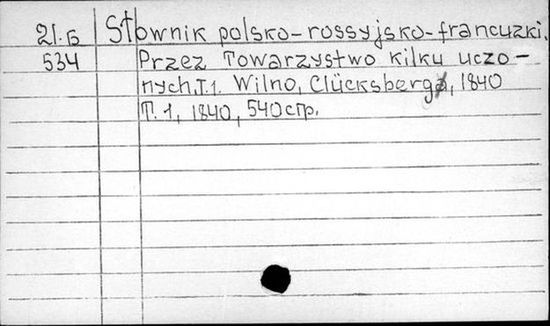 21.Б Słownik polsko-rossyjsko-francuzki.
534 Przez Towarzystwo kilku uczo-
nych.T.1. Wilno, Clücksberg, 1840
T.1, 1840, 540стр.